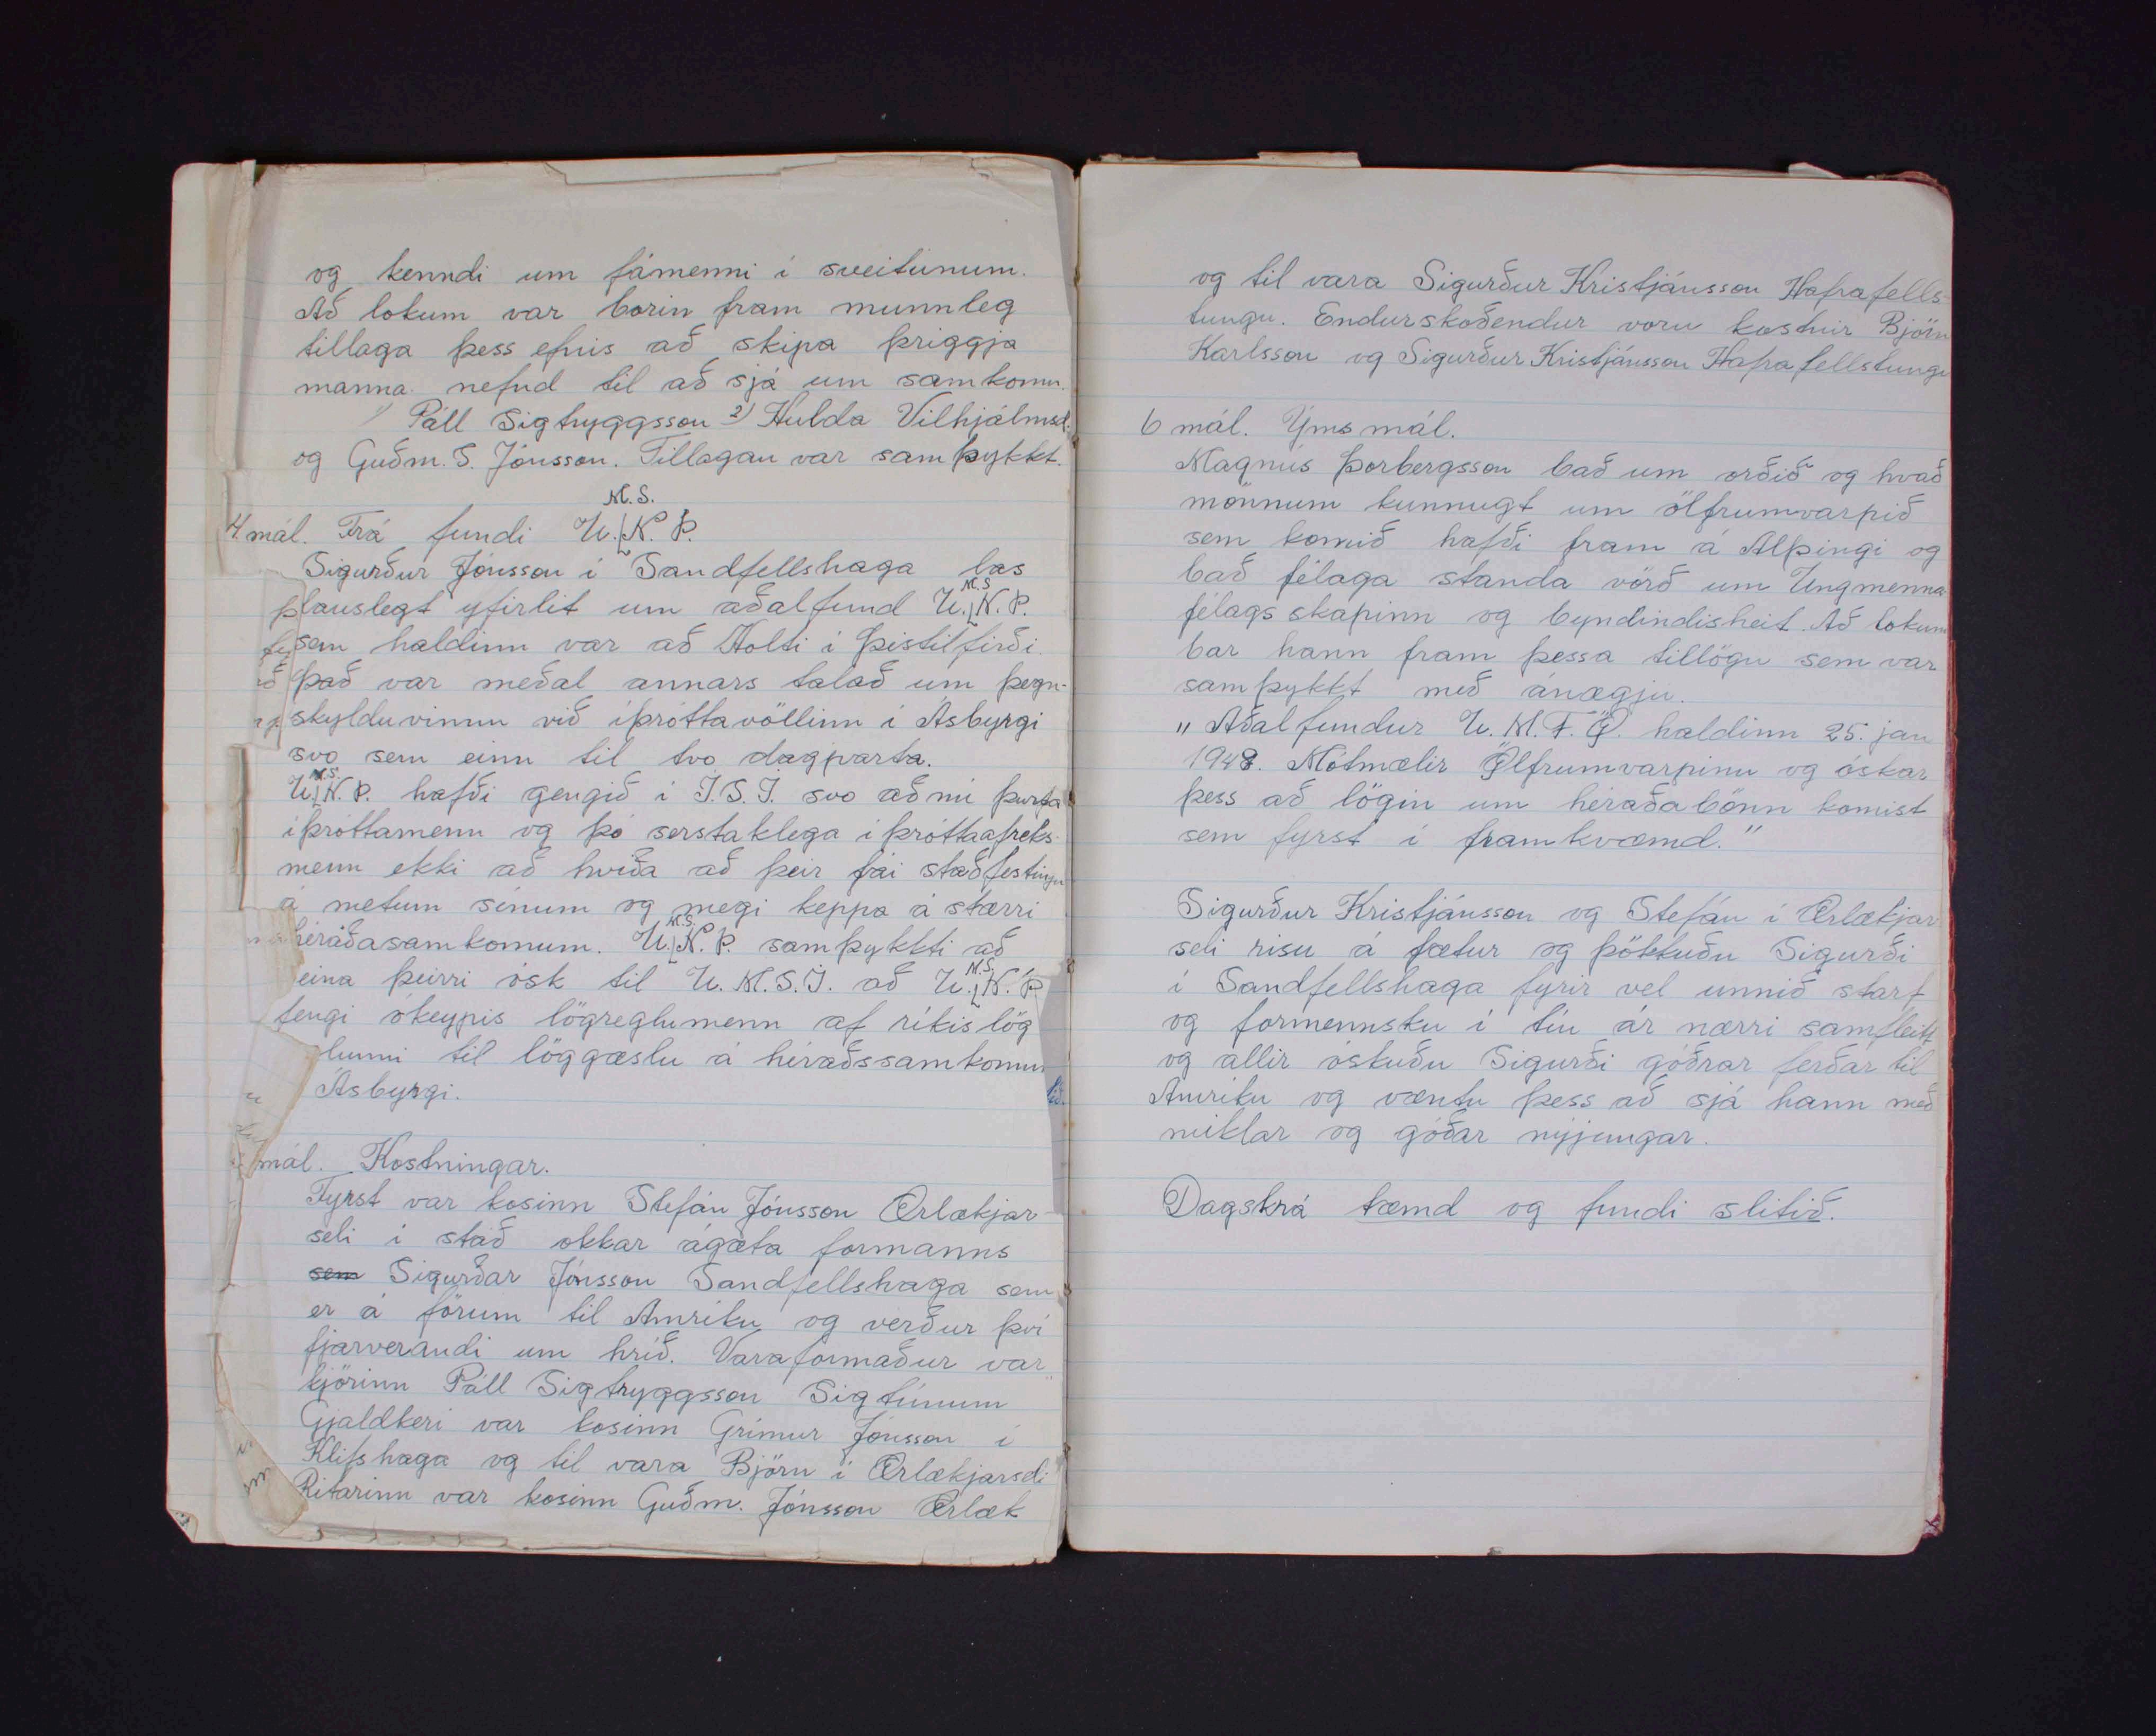 og kenndi um fámenni í sveitunum.
Að lokum var borin fram munnleg
tillaga þess efnis að skipa þriggja
manna nefnd til að sjá um samkomu.
1) Páll Sigtryggsson 2) Hulda Vilhjálmsd.
og Guðm. S. Jónsson. Tillagan var samþykkt.
M.S.
4 mál. Frá fundi U. N. Þ.
Sigurður Jónsson í Sandfellshaga las
M.S
lauslegt yfirlit um aðalfund U. N. Þ.
sem haldinn var að Holti í Þistilfirði.
Það var meðal annars talað um þegn-
skylduvinnu við íþróttavöllinn í Asbyrgi
svo sem einn til tvo dagparta.
M.S.
U. N. Þ. hafði gengið í Í.S.Í. svo að nú þurfa
íþróttamenn og þó serstaklega íþróttaafreks-
menn ekki að kvíða að þeir fái staðfestingu
á metum sínum og megi keppa á stærri
M.S.
héraðasamkomum. U. N. Þ. samþykkti að
M.S.
eina þeirri ósk til U. M. S. Í. að U. N. Þ.
fengi ókeypis lögreglumenn af ríkislög
lunni til löggæslu á héraðssamkomu
Ásbyrgi.
mál. Kostningar.
Fyrst var kosinn Stefán Jónsson Ærlækjar-
seli í stað okkar ágæta formanns
sem Sigurðar Jónsson Sandfellshaga sem
er á förum til Amríku og verður því
fjarverandi um hríð. Varaformaður var
kjörinn Páll Sigtryggsson Sigtúnum
Gjaldkeri var kosinn Grímur Jónsson í
Klifshaga og til vara Björn í Ærlækjarseli
Ritarinn var kosinn Guðm. Jónsson Ærlæk
og til vara Sigurður Kristjánsson Hafrafells-
tungu. Endurskoðendur voru kostnir Björn
Karlsson og Sigurður Kristjánsson Hafrafellstungu
6 mál. Ýms mál.
Magnús Þorbergsson bað um orðið og kvað
mönnum kunnugt um ölfrumvarpið
sem komið hafði fram á Alþingi og
bað félaga standa vörð um Ungmenna
félagsskapinn og byndindisheit. Að lokum
bar hann fram þessa tillögu sem var
samþykkt með ánægju.
„Aðalfundur U. M. F. Ö. haldinn 25. jan
1948. Mótmælir Ölfrumvarpinu og óskar
þess að lögin um héraðabönn komist
sem fyrst í framkvæmd."
Sigurður Kristjánsson og Stefán í Ærlækjar
seli risu á fætur og þökkuðu Sigurði
í Sandfellshaga fyrir vel unnið starf
og formennsku í tíu ár nærri samfleitt
og allir óskuðu Sigurði góðrar ferðar til
Amríku og væntu þess að sjá hann með
miklar og góðar nýjungar.
Dagskrá tæmd og fundi slitið.